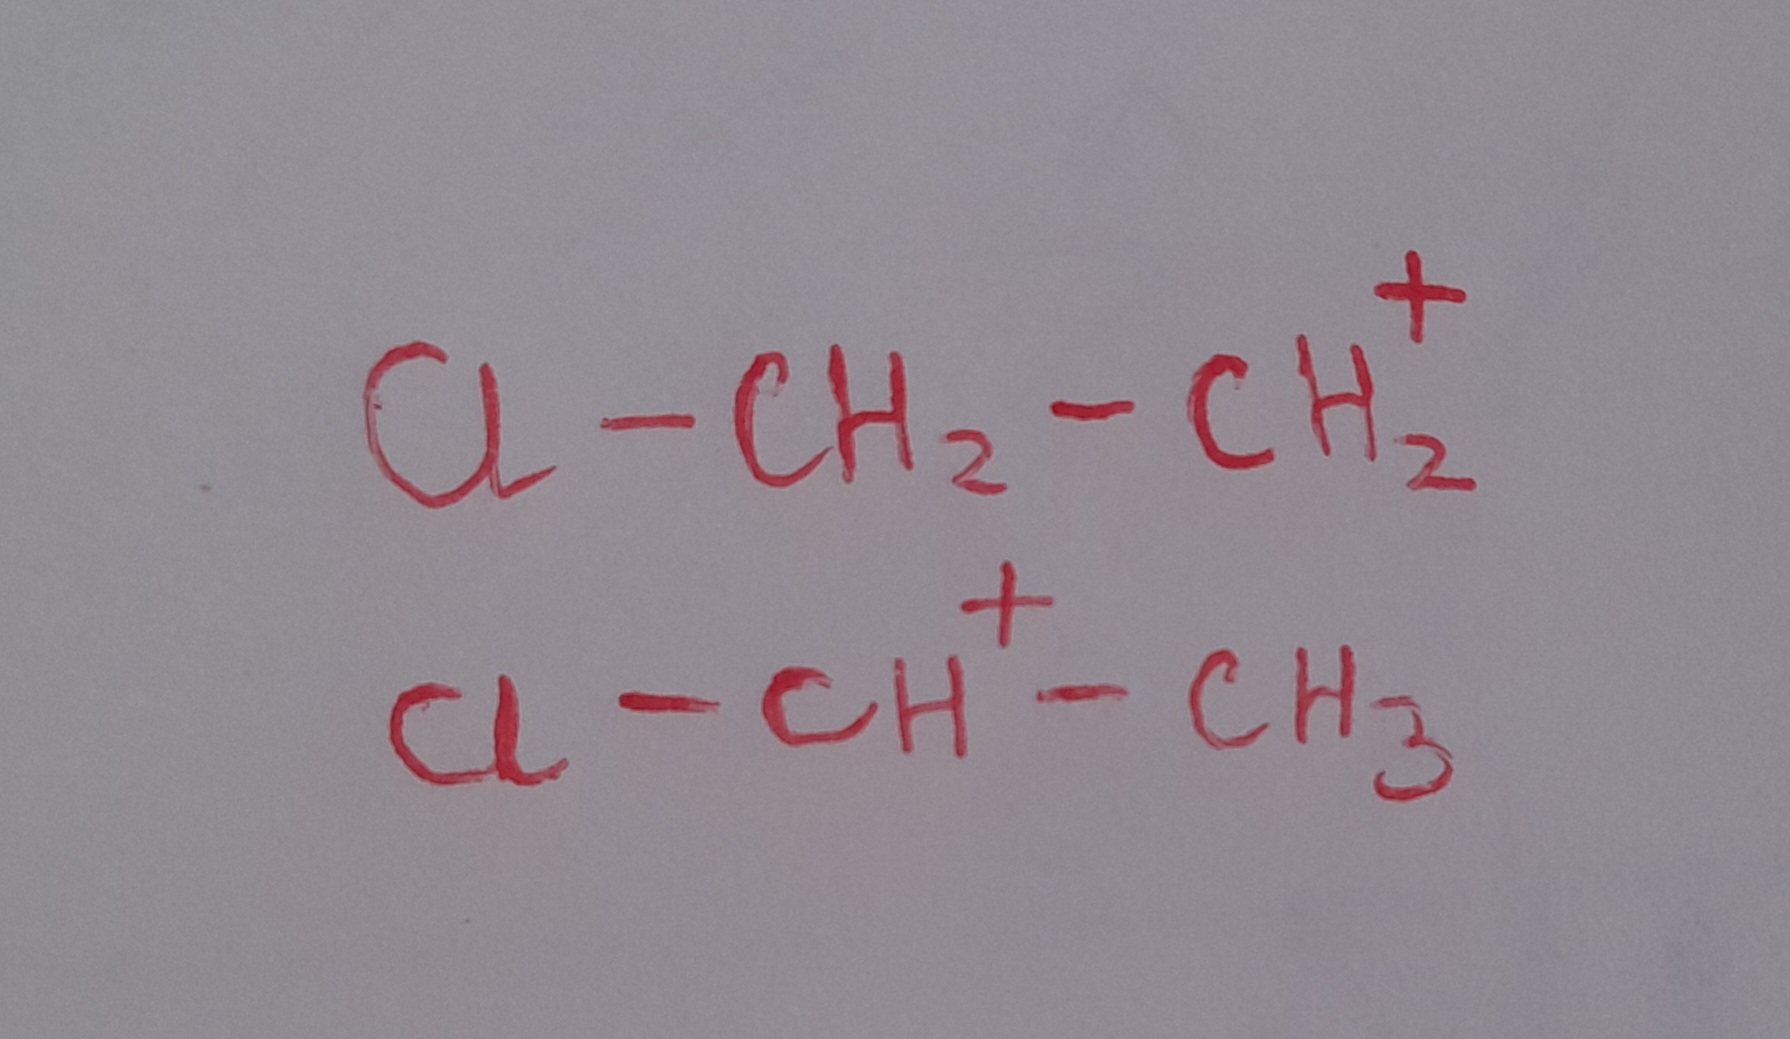 Cl - CH₂ - CH₂⁺
Cl - CH⁺ - CH₃